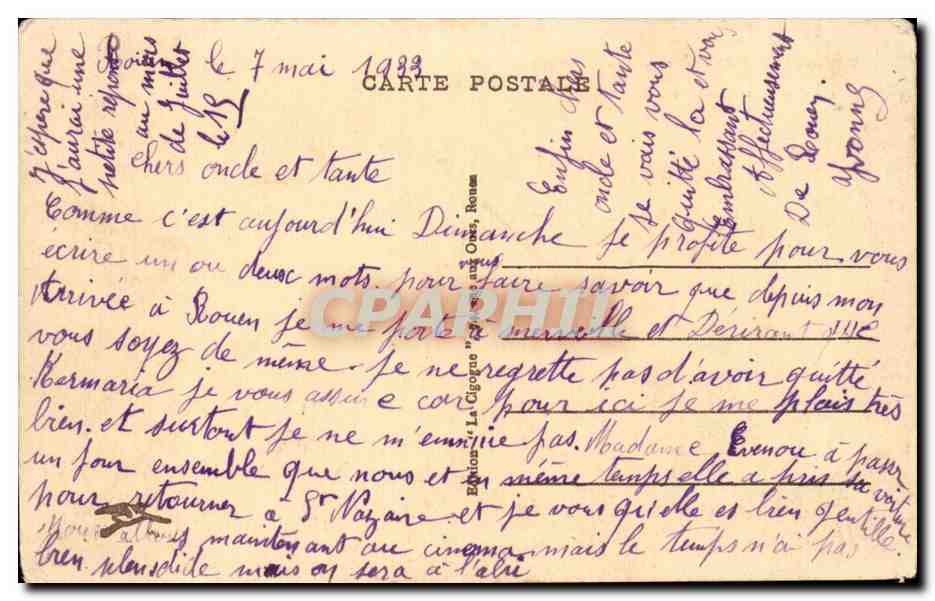 le 7 mai 1933
CARTE POSTALE
chers oncle et tante
Comme c'est aujourd'hui Dimanche je profite pour vous
écrire un ou deux mots pour vous faire savoir que depuis mon
Arrivée à Rouen je me porte à merveille et Désirant que
vous soyez de même. je ne regrette pas d'avoir quitté
Kermaria je vous assure car pour ici je me plais très
bien. et surtout je ne m'ennuie pas. Madame Evenou à passer
un jour ensemble que nous et en même temps elle a pris sa voiture
pour retourner à St Nazaire et je vous qu'elle es bien gentille.
Nous allons maintenant au cinema mais le temps n'ai pas
bien splendide mais on sera à l'abri
J'espère que
j'aurai une
petite reponse
au mois
de Juillet
le 15
Enfin chers
oncle et tante
je vais vous
quitté la et vous
Embrassant
Affectueusement
De Rouen
Yvonne
Edition "La Cigogne" aux Ours, Rouen
CPAPHIL